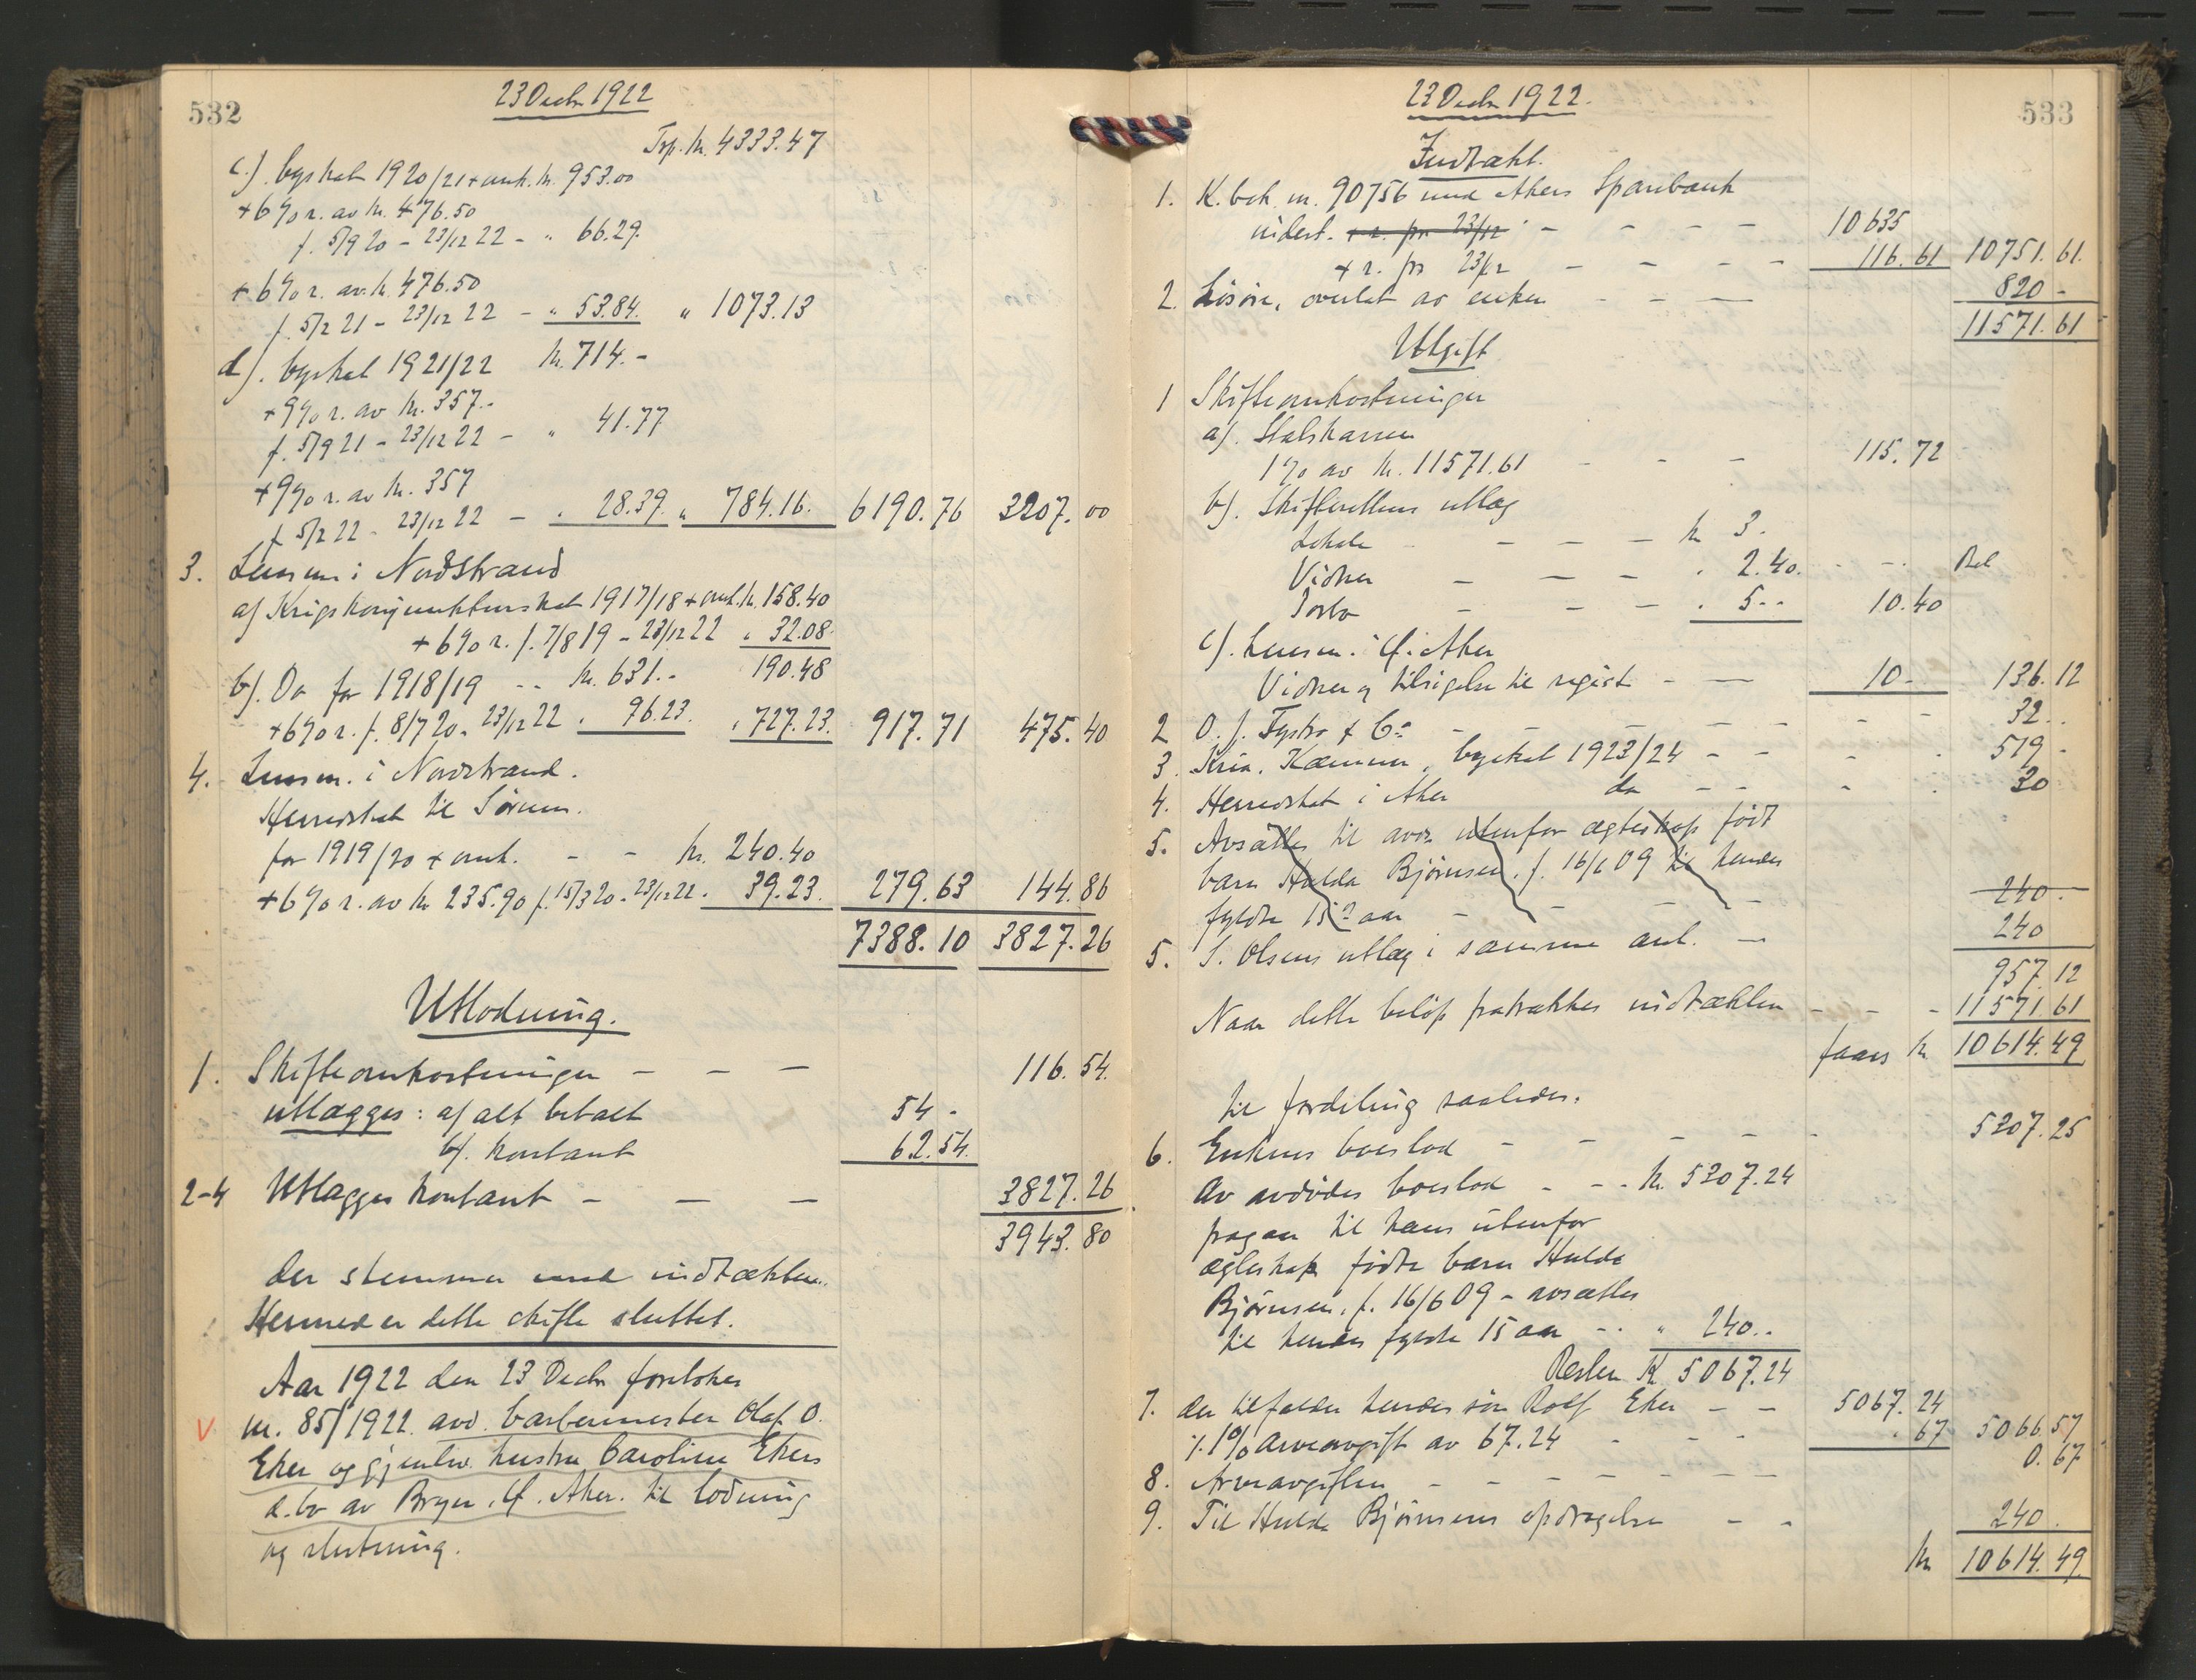 532
23 Decbr 1922
Trp. kr. 4333.47
c.) byskat 1920/21 + omk. kr. 953.00
+ 6% r. av kr. 476.50
f. 5/9 20 - 23/12 22 - " 66.29.
+ 6% r. av kr. 476.50
f. 5/2 21 - 23/12 22 - " 53.84. " 1073.13
d). byskat 1921/22 kr. 714.-
+ 9% r. av kr. 357.-
f. 5/9 21 - 23/12 22 - " 41.77
+ 9% r. av kr. 357
f. 5/2 22 - 23/12 22 - " 28.39. " 784.16. 6190.76 3207.00
3. Lensm. i Nordstrand
a) Krigskonjunkturskat 1917/18 + omk. kr. 158.40
+ 6% r. f. 7/8 19 - 23/12 22 " 32.08.
190.48
b). Do for 1918/19 -- kr. 631.-
+ 6% r. f. 8/7 20 - 23/12 22 " 96.23. " 727.23. 917.71 475.40
4. Lensm. i Nordstrand.
Herredskat til Sørum.
for 1919/20 + omk. - - kr. 240.40
+ 6% r. av kr 235.90 f. 15/3 20 - 23/12 22. 39.23. 279.63 144.86
7388.10 3827.26
Utlodning.
1. Skifteomkostninger - - - 116.54.
utlægges: a) alt betalt 54.-
b). kontant 62.54.
2-4 Utlægges kontant - - - 3827.26
3943.80
der stemmer med indtækten.
Hermed er dette skifte sluttet.
Aar 1922 den 23 Decbr foretokes
nr. 85/1922 avd. barbermester Olaf O.
Eker og gjenlev. hustru Caroline Ekers
d. bo av Bryn, Ø. Aker. til lodning
og slutning.
533
23 Decbr 1922.
Indtækt.
1. K. bok nr. 90756 med Akers Sparebank
indest. + r. pr 23/12 - - - - 10635
+ r. pr 23/12 - - - - 116.61 10751.61.
2. Løsøre, overlat av enken - - - 820 -
11571.61
Utgift
1 Skifteomkostninger
a). Statskassen
1% av kr. 11571.61 - - - 115.72
b). Skifterettens utlæg
Lokale - - - kr 3.
Vidner - - - " 2.40.
Porto - - - " 5-- 10.40
c). Lensm. i Ø. Aker
Vidner og tilsigelse til regist - - 10 - 136.12
2 O. J. Fystro & Co - - - - 32..
3. Kria. Kæmner, byskat 1923/24 - - - 519 -
4. Herredskat i Aker do - - - 30
5. Avsættes til avdr. utenfor ægteskap født
barn Hulda Bjørnsen, f. 16/6 09 til hendes
fyldte 15de aar - - - 240 -
5. S. Olsens utlæg i samme anl. - 240
957.12
Naar dette beløp fratrækkes indtækten - - - 11571.61
faaes kr 10614.49
til fordeling saaledes.
6. Enkens boeslod - - - - - 5307.25
Av avdødes boeslod - - - kr. 5307.24
fragaar til hans utenfor
ægteskap fødte barn Hulda
Bjørnsen, f. 16/6 09 - avsættes
til hendes fyldte 15 aar - - " 240..
Resten K 5067.24
7. der tilfalder hendes søn Rolf Eker - - 5067.24
÷ 1% arveavgift av 67.24 - - - .67 5066.57
8. Arveavgiften - - - - - - 0.67
9. Til Hulda Bjørnsens opdragelse - - 240.
kr 10614.49.